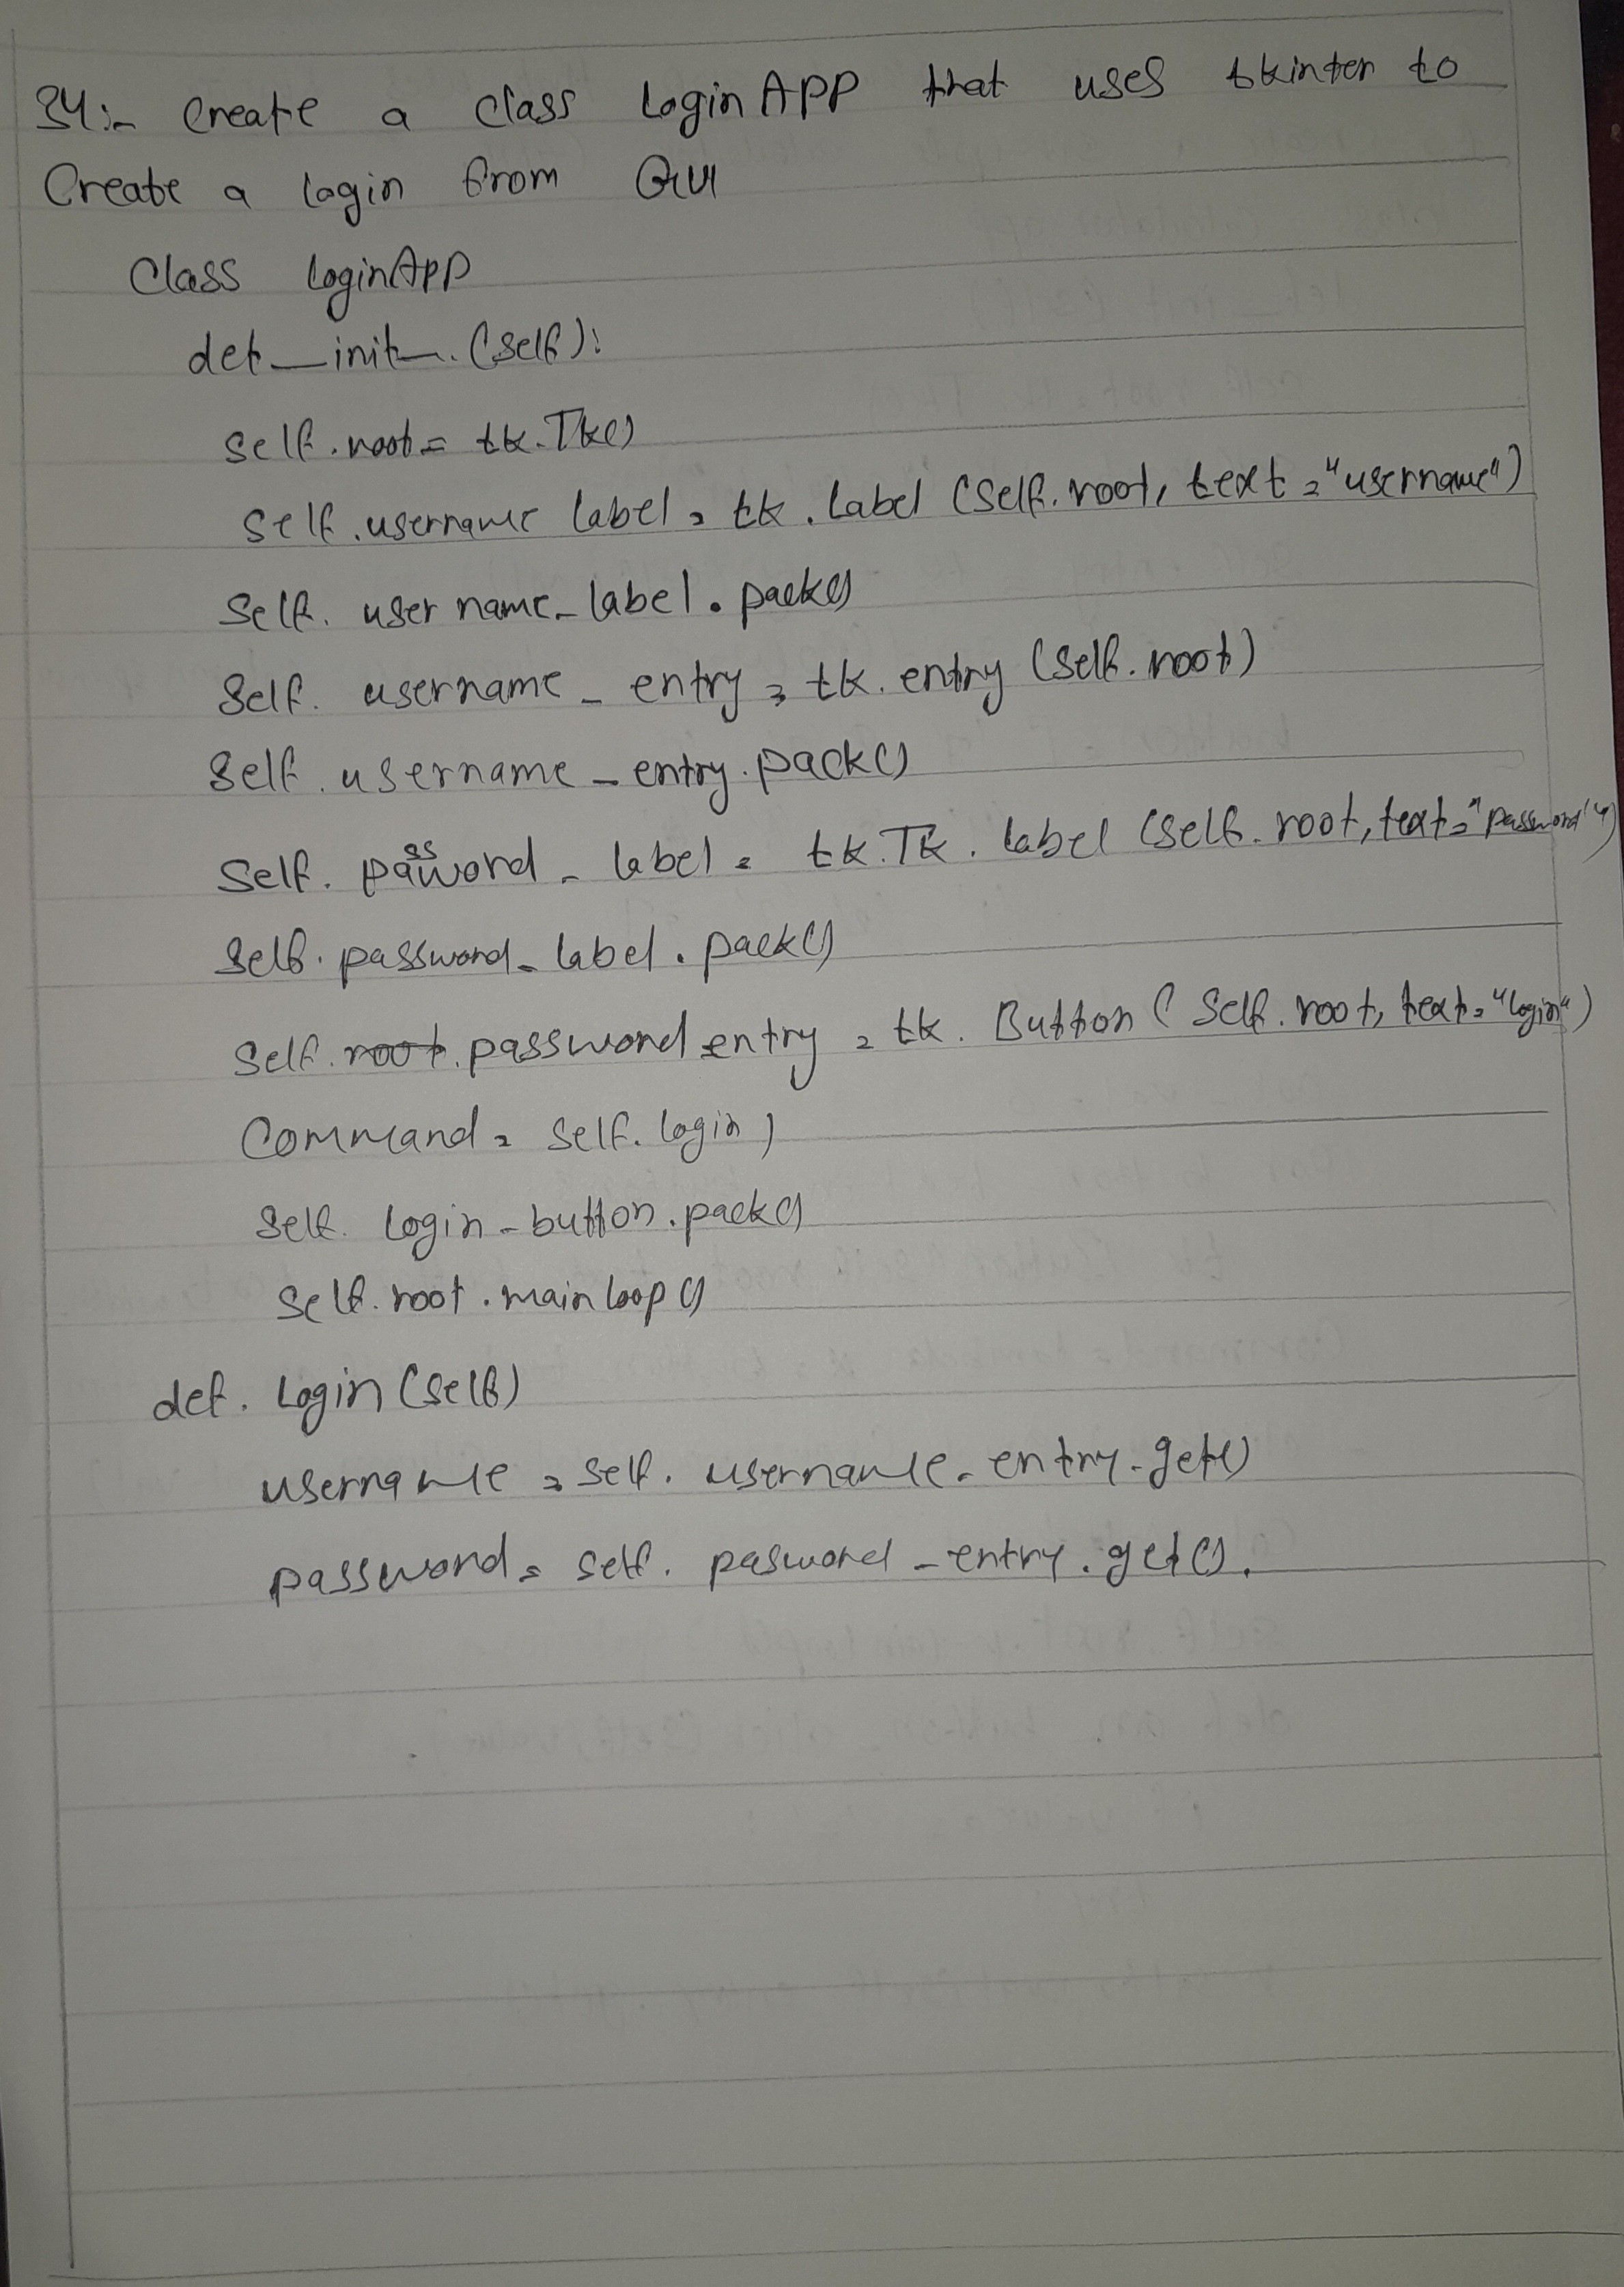 34:- Create a class Login App that uses tkinter to
Create a login from GUI
Class LoginApp
def __init__. (self):
self.root = tk.Tk()
self.username label = tk.label (self.root, text = "username")
self. user name_label.pack()
self. username_entry = tk.entry (self.root)
self.username_entry.pack()
self. password_label = tk.Tk.label (self.root, text = "password")
self.password_label.pack()
self. root. password entry = tk. Button ( self.root, text = "login")
Command = self.login )
self. login-button.pack()
self.root.mainloop()
def. Login (self)
username = self. username_entry.get()
password = self. pasword_entry.get().